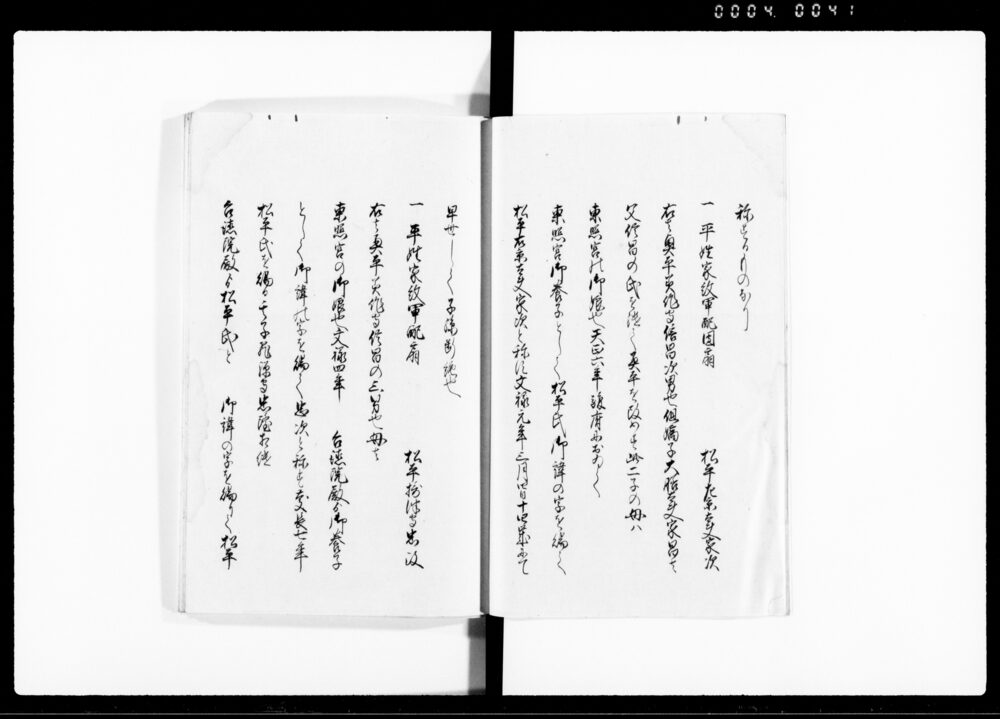 0004 0041
称するものなり
一 平姓家紋軍配団扇 松平右京大夫家次
右ハ奥平美作守信昌次男也但嫡子大膳大夫家昌ハ
父信昌の氏を継て奥平を改めす此二子の母ハ
東照宮の御娘也天正六年 におゐて
東照宮御養子として松平氏御諱の字を編て
松平右京大夫家次と称す文禄元年三月四日十四歳にて
早世しして子孫断絶也
一 平姓家紋軍配扇 松平摂津守忠政
右ハ奥平美作守信昌の三男也母ハ
東照宮の御娘也文禄四年 台徳院殿の御養子
として御諱の字を編て忠次と称す慶長七年
松平氏を編る其子飛騨守忠隆相続
台徳院殿より松平氏と 御諱の字を編りて松平